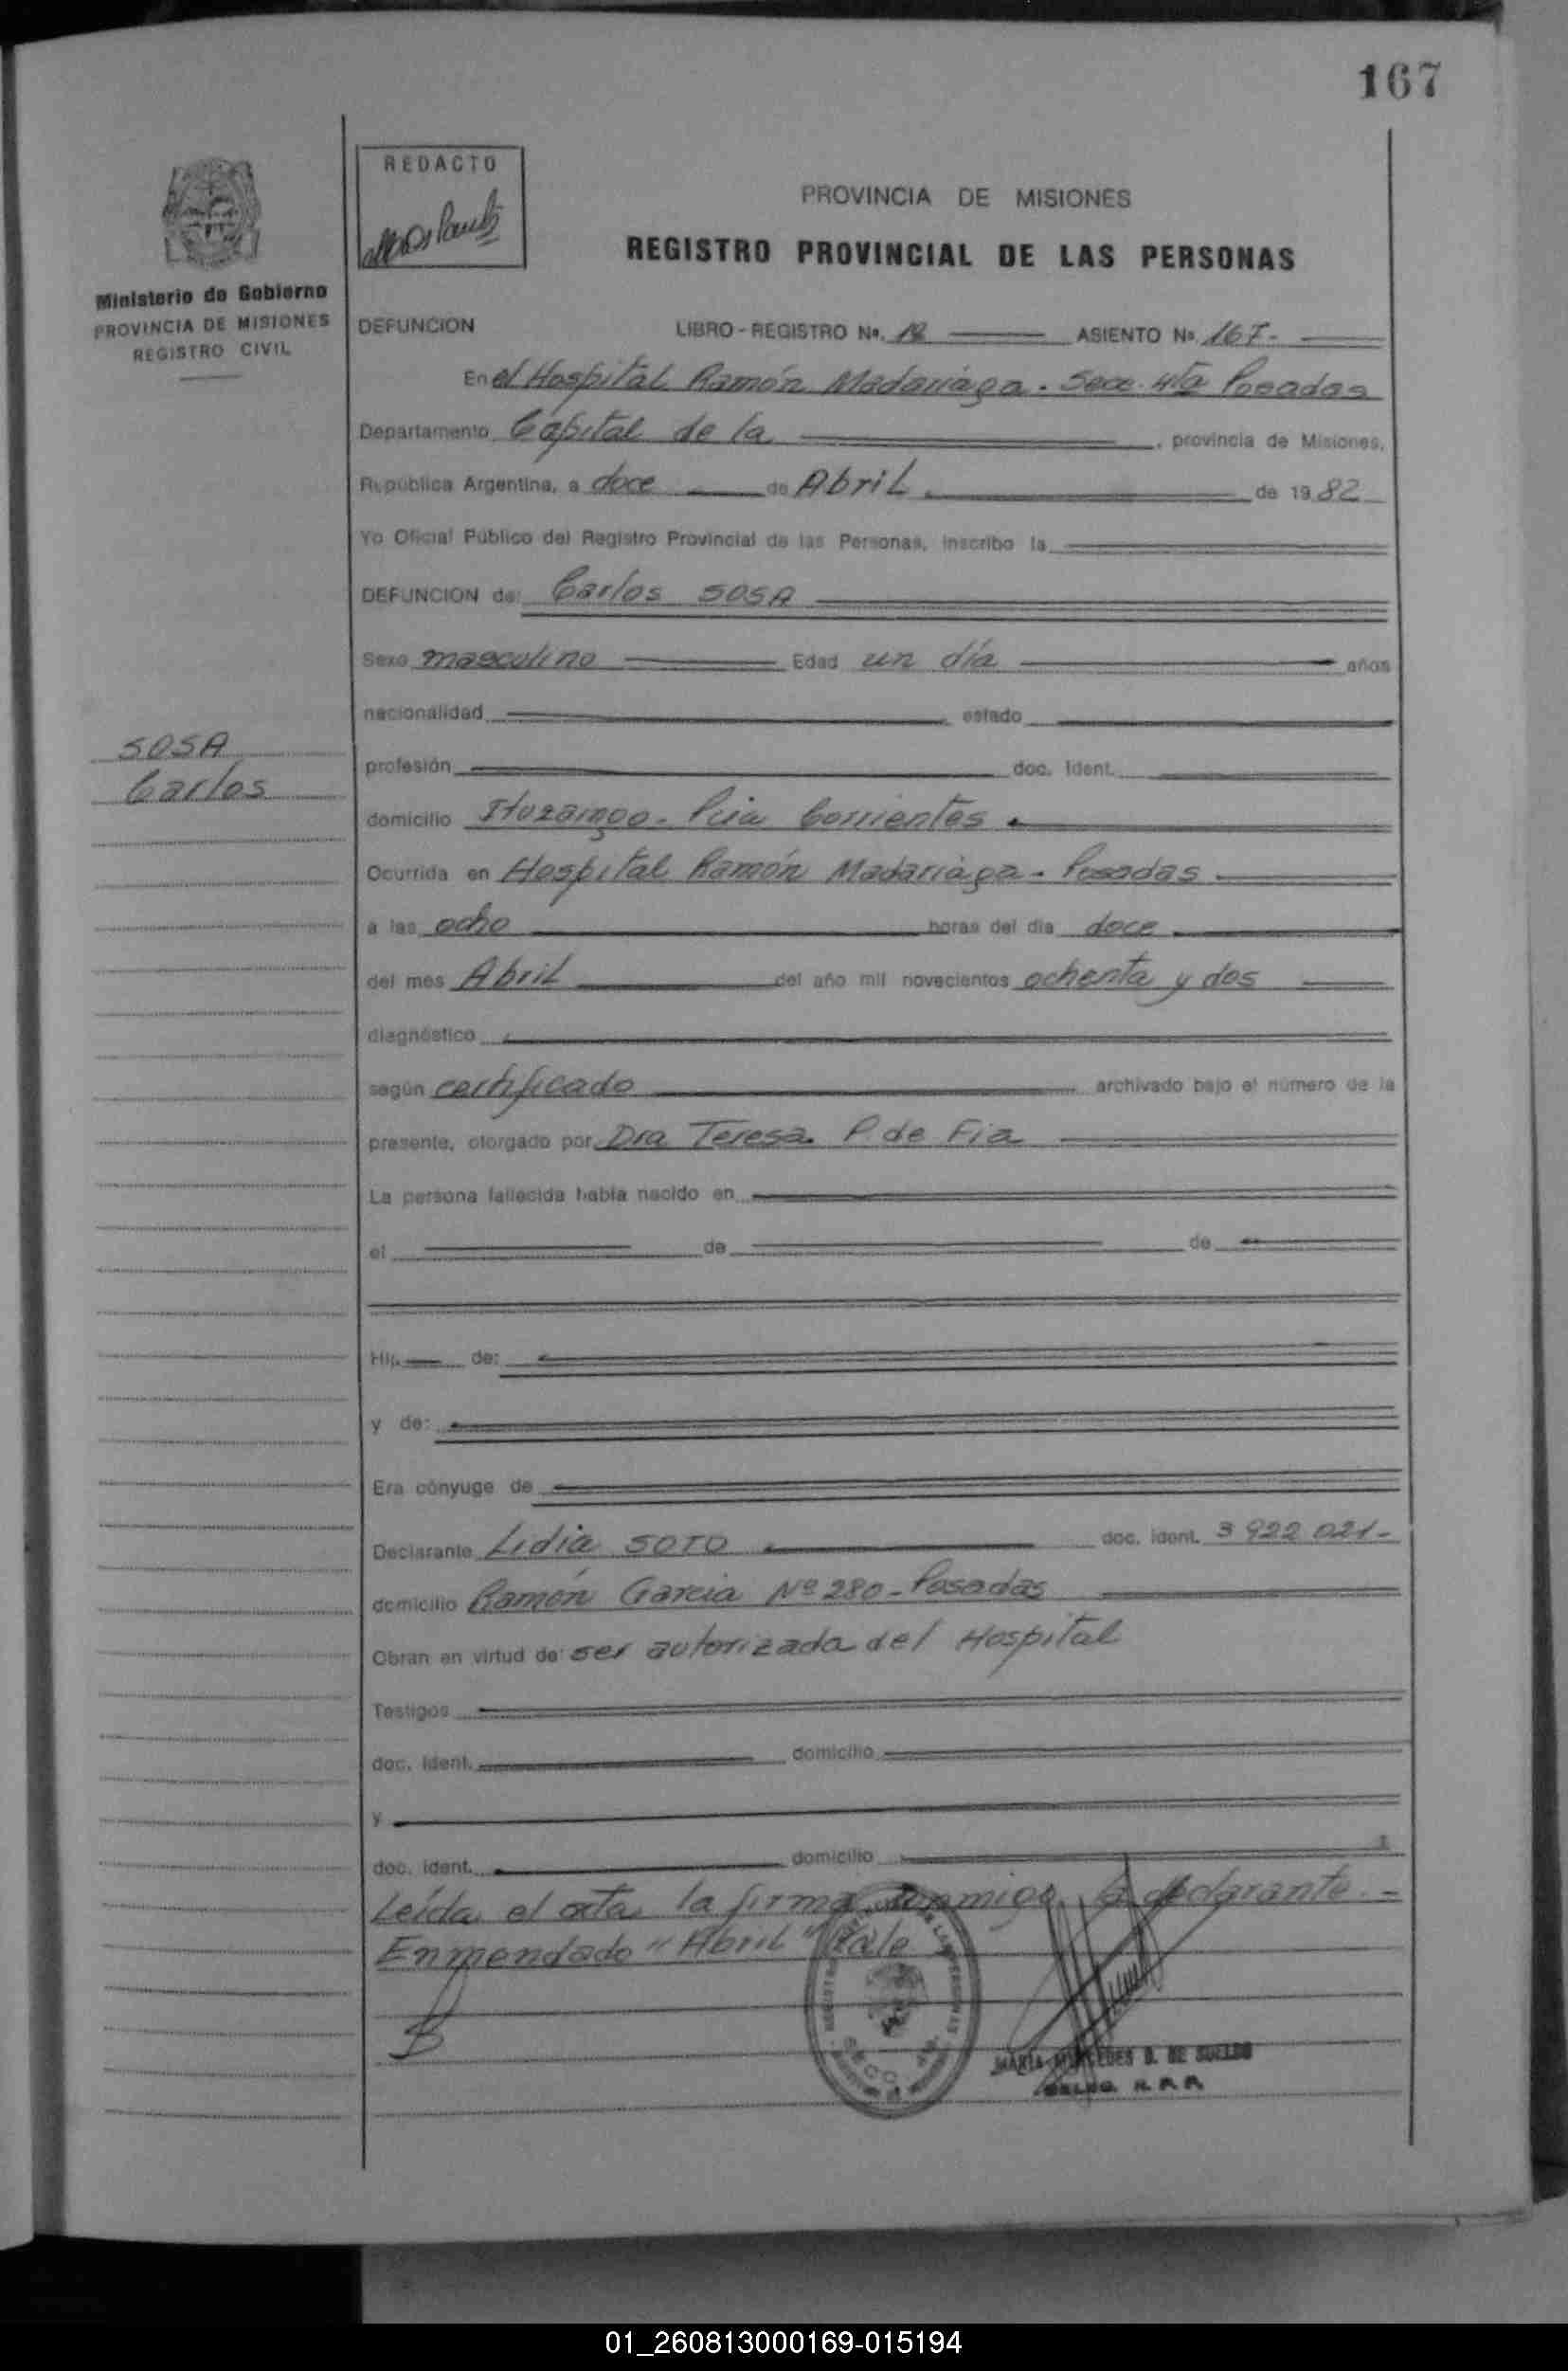 167
REDACTO
PROVINCIA DE MISIONES
REGISTRO PROVINCIAL DE LAS PERSONAS
Ministerio de Gobierno
PROVINCIA DE MISIONES
REGISTRO CIVIL
DEFUNCION LIBRO-REGISTRO Nº. 12 ASIENTO Nº. 167-
En el Hospital Ramón Madariàga. Secc. 4ta Posadas
Departamento Capital de la , provincia de Misiones,
República Argentina, a doce de Abril de 1982
Yo Oficial Público del Registro Provincial de las Personas, inscribo la
DEFUNCION de: Carlos SOSA
Sexo masculino Edad un día años
nacionalidad estado
SOSA
Carlos
profesión doc. ident.
domicilio Ituzaingo - Pcia Corrientes
Ocurrida en Hospital Ramón Madariàga - Posadas
a las ocho horas del día doce
del mes Abril del año mil novecientos ochenta y dos
diagnóstico
según certificado archivado bajo el número de la
presente, otorgado por Dra Teresa P. de Fia
La persona fallecida había nacido en
el de de
Hij de:
y de:
Era cónyuge de
Declarante Lidia SOTO doc. ident. 3 922 021-
domicilio Ramón Garcia Nº 280 - Posadas
Obran en virtud de ser autorizada del Hospital
Testigos
doc. ident. domicilio
y
doc. ident. domicilio
Leída el acta la firma conmigo la declarante.-
Enmendado "Abril" Vale
SECC. 4ta
MARIA MERCEDES D. DE SUELDO
DELEG. R.P.P.
01_260813000169-015194